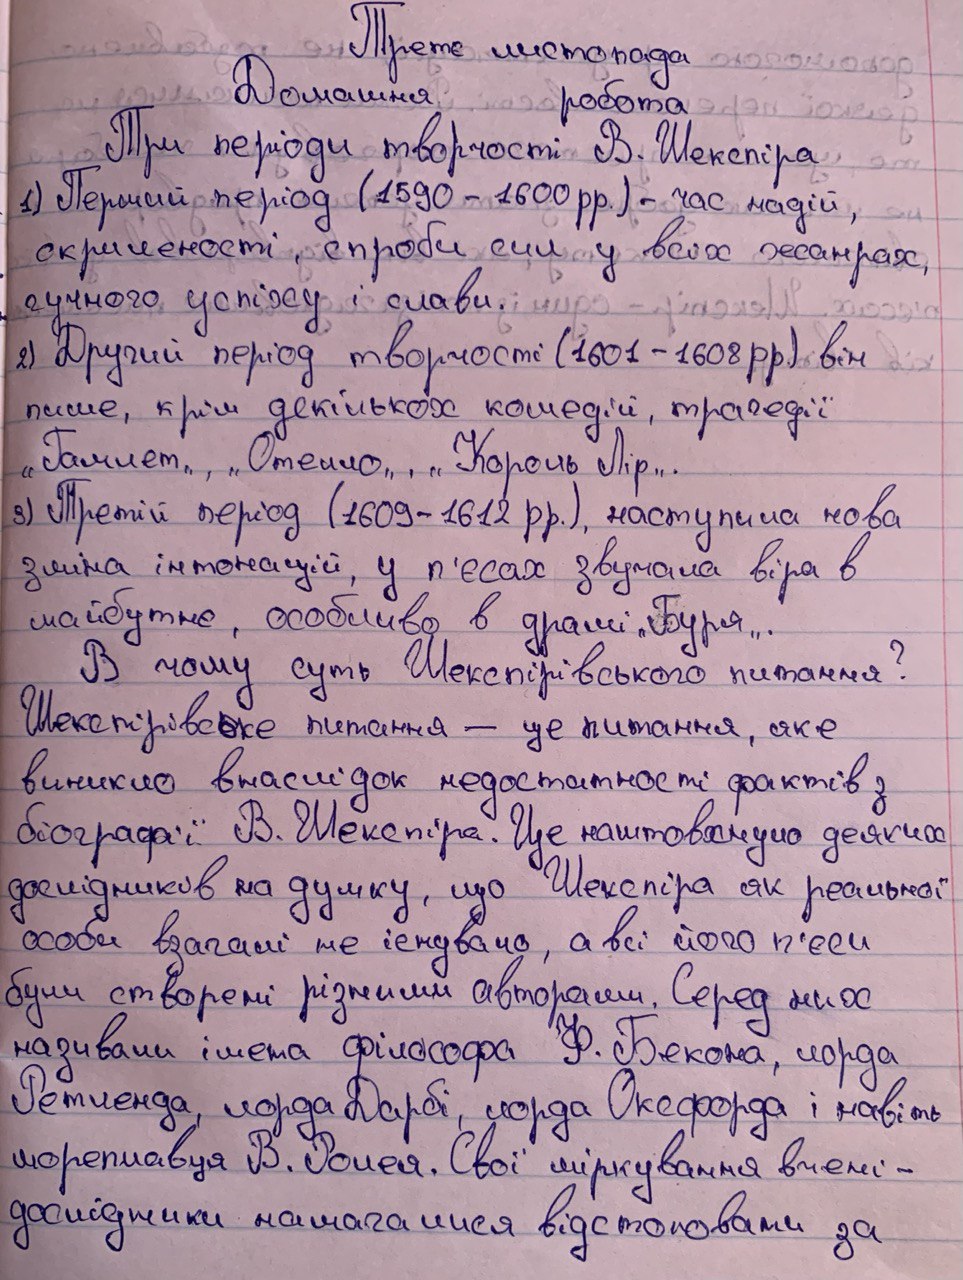 Третє листопада
Домашня робота
Три періоди творчості В. Шекспіра
1) Перший період (1590 - 1600 рр.) - час надій,
окриленості, спроби сил у всіх жанрах,
гучного успіху і слави.
2) Другий період творчості (1601 - 1608 рр) він
пише, крім декількох комедій, трагедії
„Гамлет„, „Отелло„, „Король Лір„.
3) Третій період (1609 - 1612 рр.), наступила нова
зміна інтонацій, у п'єсах звучала віра в
майбутнє, особливо в драмі „Буря„.
В чому суть Шекспірівського питання?
Шекспірівське питання — це питання, яке
виникло внаслідок недостатності фактів з
біографії В. Шекспіра. Це наштовхнуло деяких
дослідників на думку, що Шекспіра як реальної
особи взагалі не існувало, а всі його п'єси
були створені різними авторами. Серед них
називали імена філософа Ф. Бекона, лорда
Ретленда, лорда Дарбі, лорда Оксфорда і навіть
мореплавця В. Ролея. Свої міркування вчені -
дослідники намагалися відстоювати за